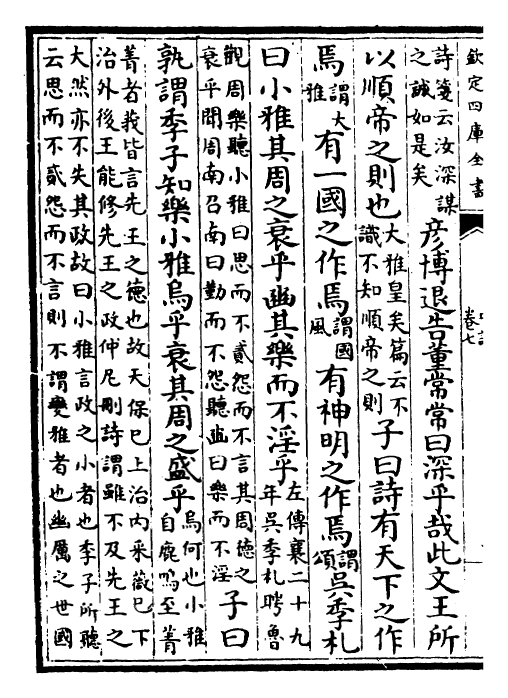 欽定四庫全書
卷七
詩箋云汝深謀
之誠如是矣
彥博退告董常常曰深乎哉此文王所
以順帝之則也
大雅皇矣篇云不
識不知順帝之則
子曰詩有天下之作
焉
謂大
雅
有一國之作焉
謂國
風
有神明之作焉
謂
頌
吳季札
曰小雅其周之衰乎豳其樂而不淫乎
左傳襄二十九
年吳季札聘魯
觀周樂聽小雅曰思而不貳怨而不言其周德之
衰乎聞周南召南曰勤而不怨聽豳曰樂而不淫
子曰
孰謂季子知樂小雅烏乎衰其周之盛乎
烏何也小雅
自鹿鳴至菁
菁者莪皆言先王之德也故天保已上治内采薇已下
治外後王能修先王之政仲尼刪詩謂雖不及先王之
大然亦不失其政故曰小雅言政之小者也季子所聽
云思而不貳怨而不言則不謂變雅者也幽厲之世國